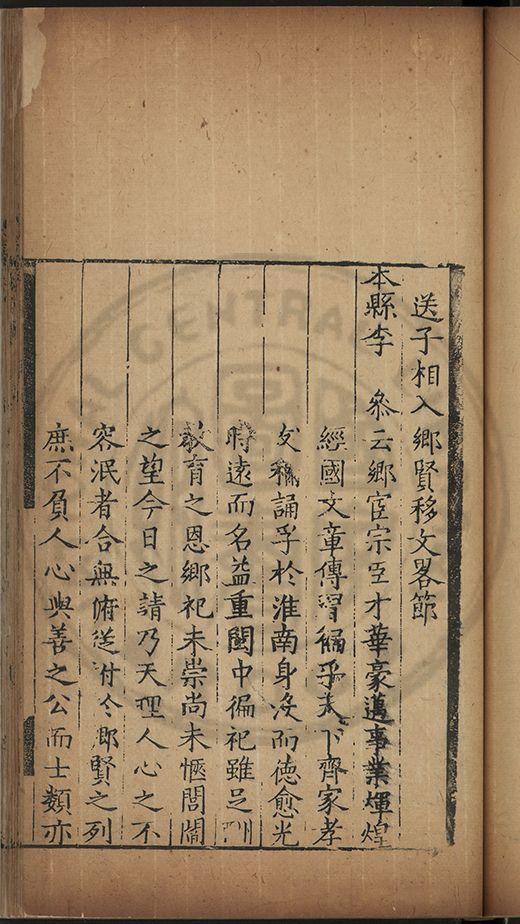 送子相入鄉賢移文畧節
本縣李　叅云鄉宦宗臣才華豪邁事業煇煌
經國文章傳習徧乎天下齊家孝
友稱誦孚於淮南身歿而徳愈光
時遠而名益重閩中徧祀雖足
教育之恩鄉祀未崇尚未愜閭閻
之望今日之請乃天理人心之不
容泯者合無俯從付令鄉賢之列
庶不負人心與善之公而士類亦
CENTRAL